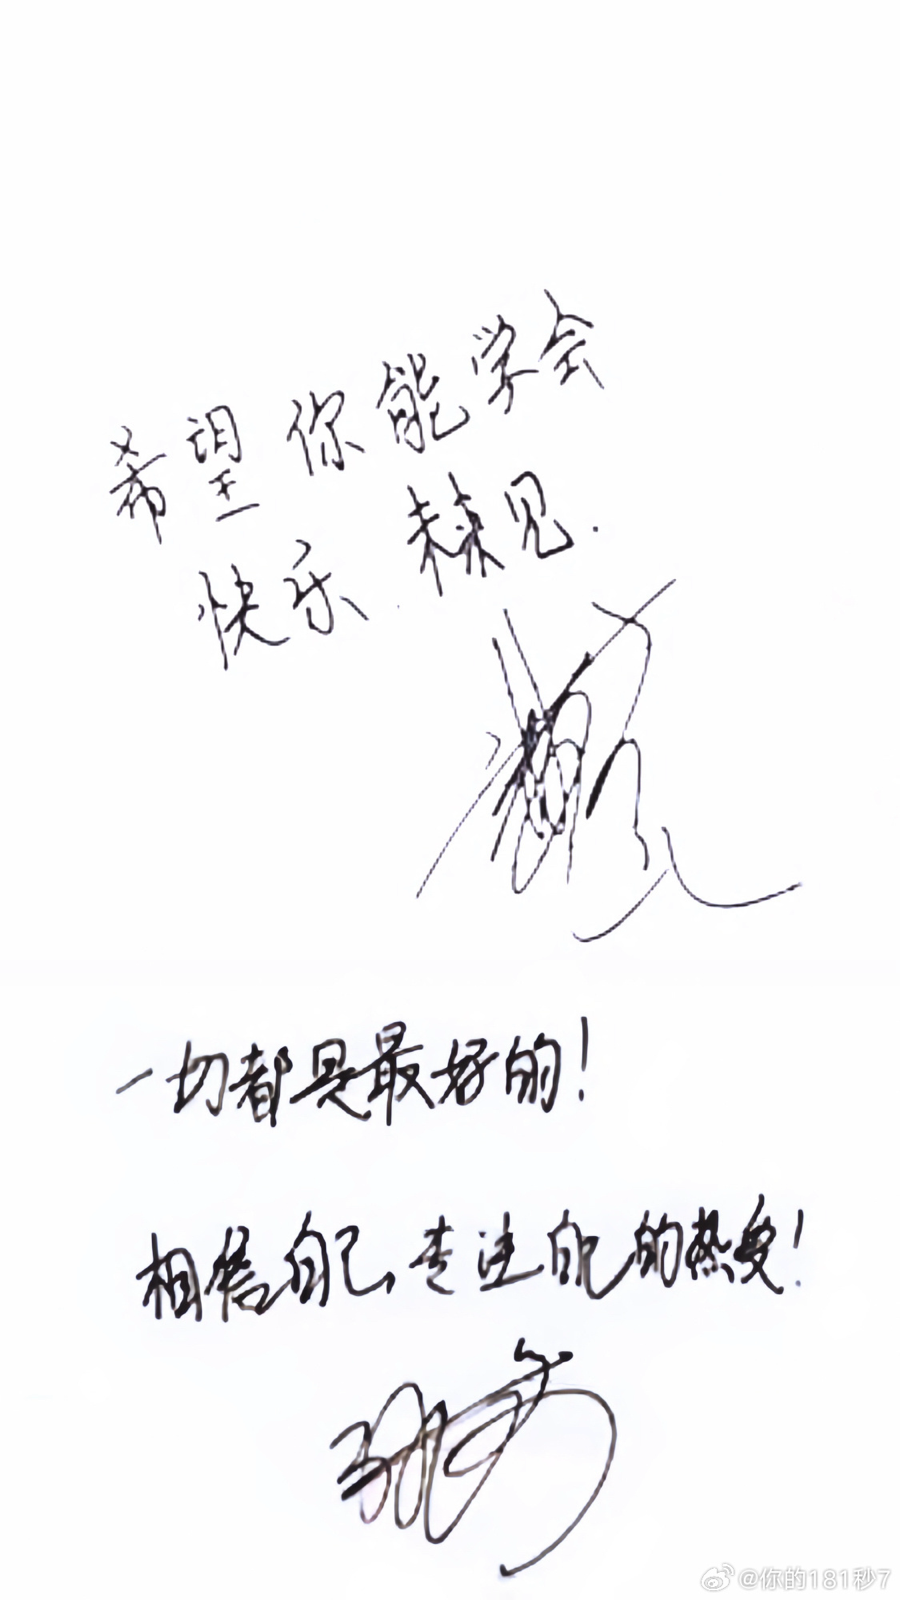 希望你能学会
快乐.棘见.
一切都是最好的!
相信自己、专注自己的热爱!
@你的181秒7